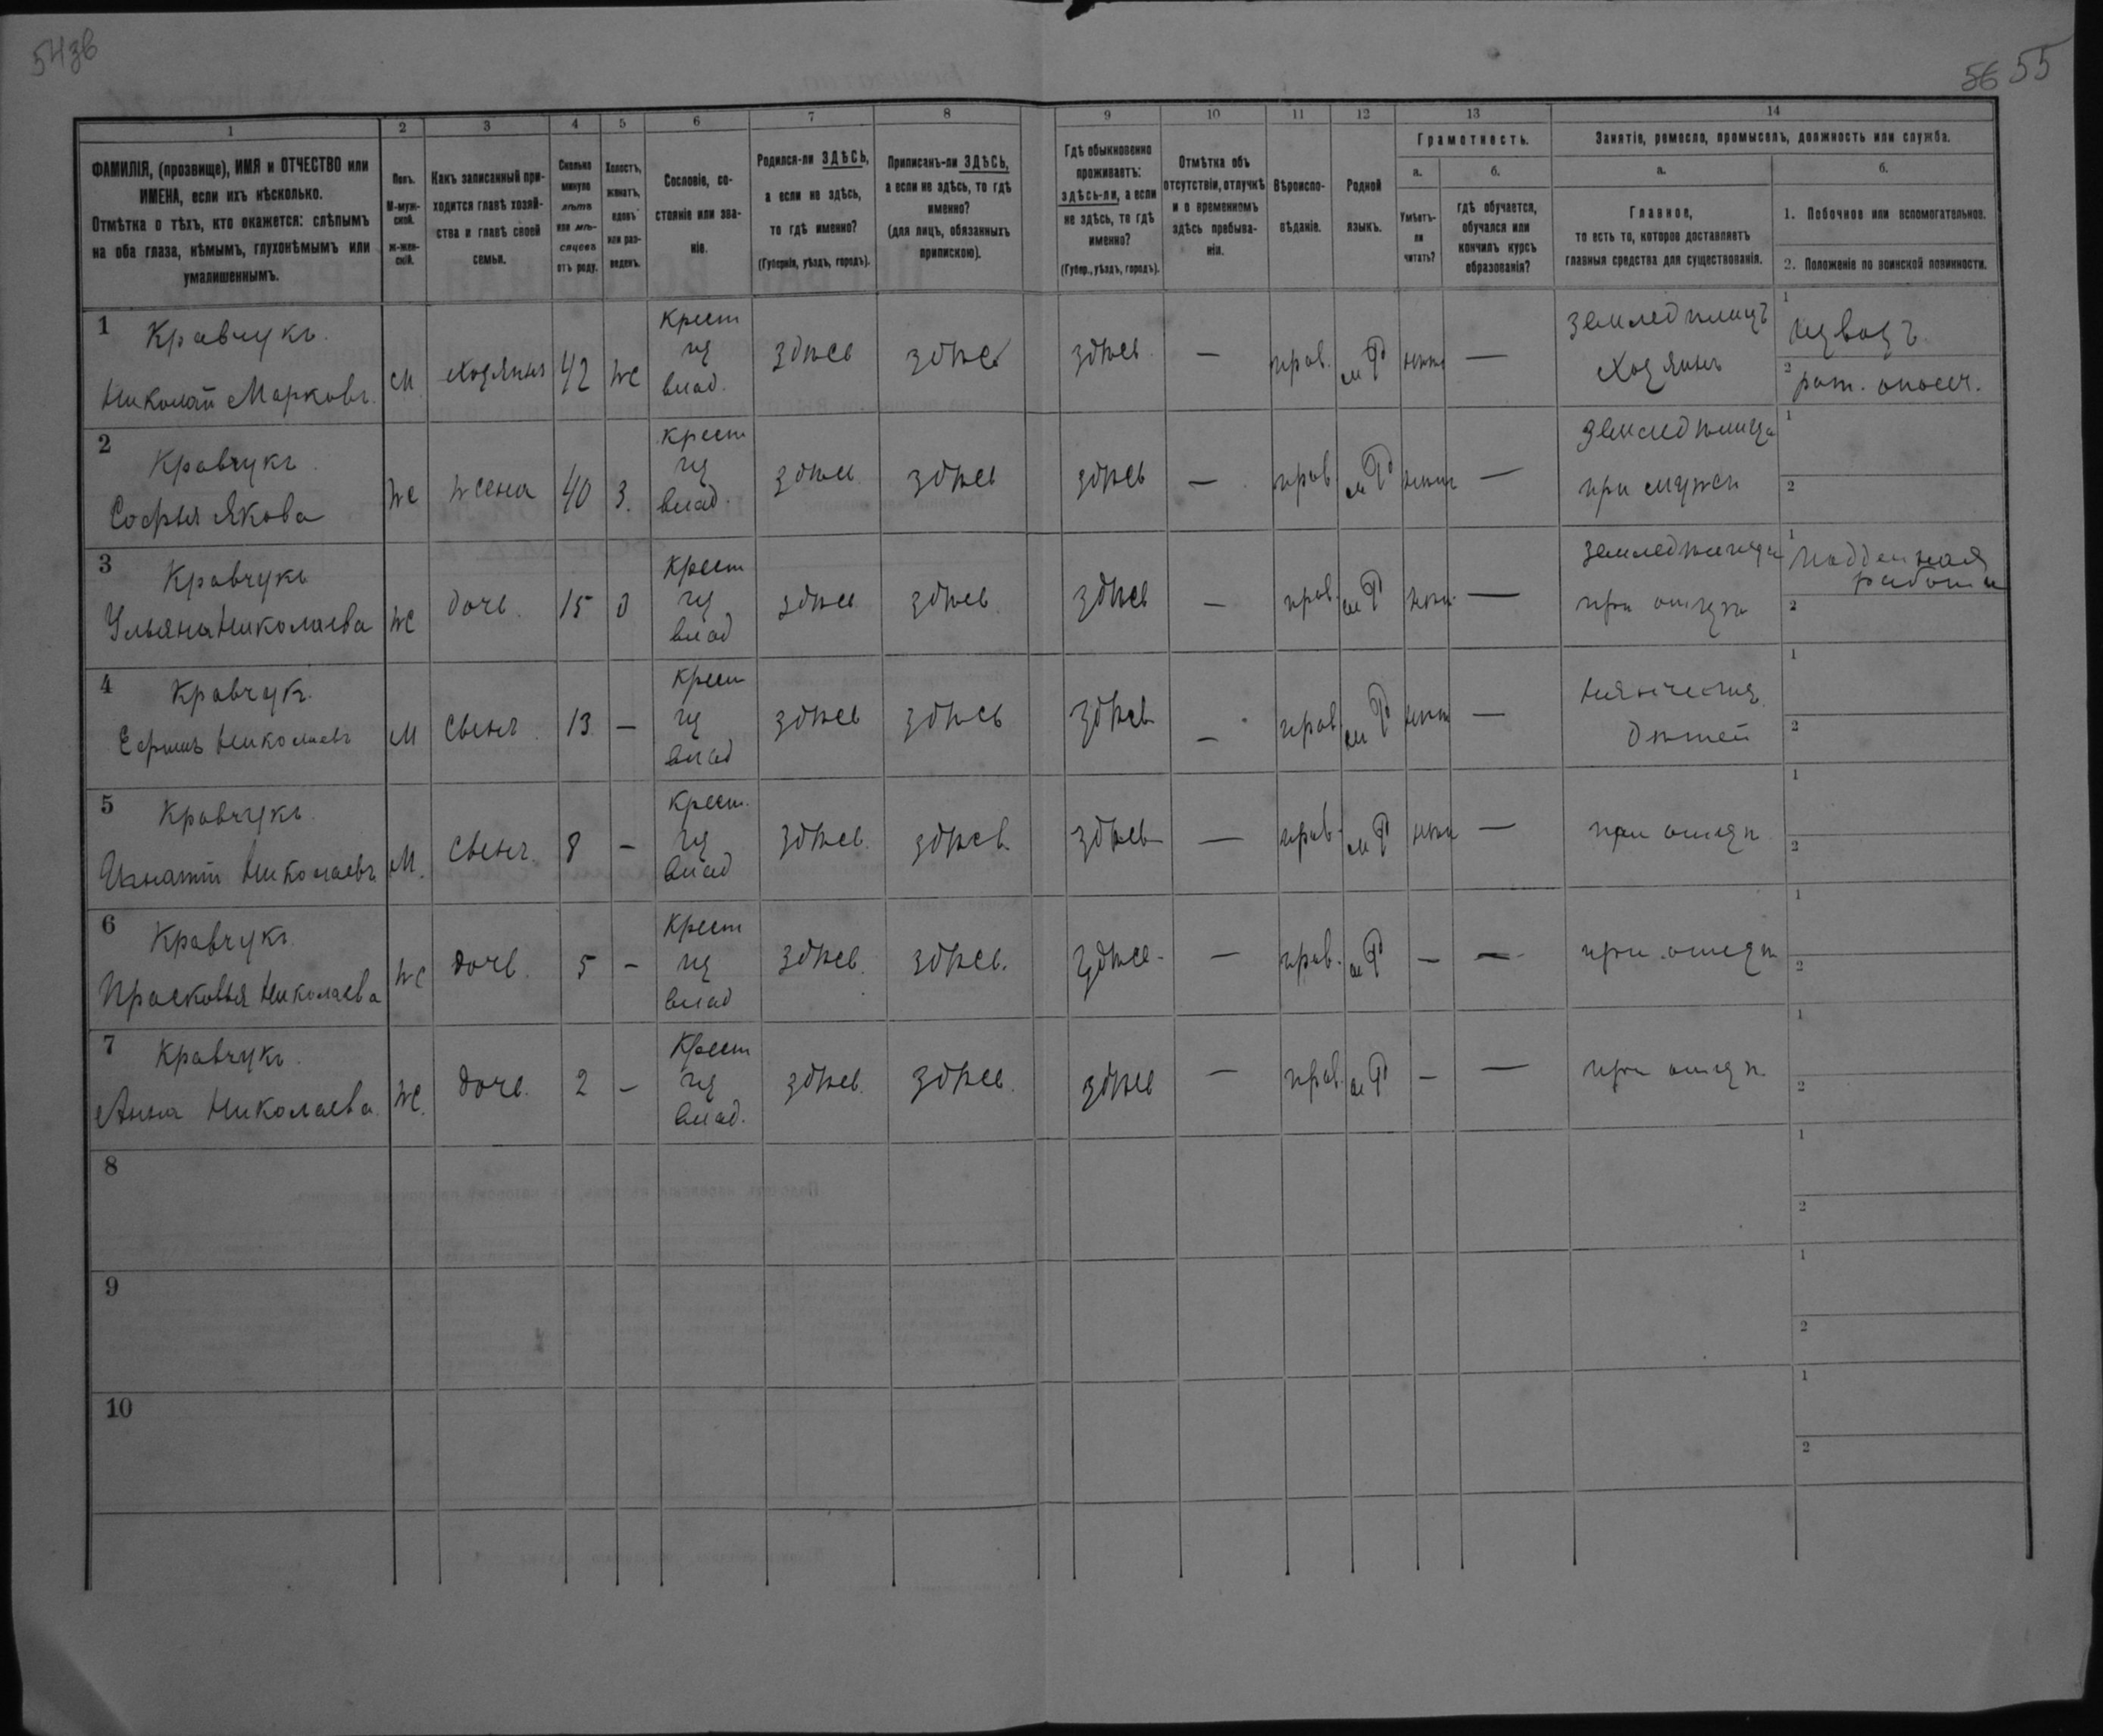 543б
56 55
1 2 3 4 5 6 7 8 9 10 11 12 13 14
ФАМИЛІЯ, (прозвище), ИМЯ и ОТЧЕСТВО или
ИМЕНА, если ихъ нѣсколько.
Отмѣтка о тѣхъ, кто окажется: слѣпымъ
на оба глаза, нѣмымъ, глухонѣмымъ или
умалишеннымъ.
Полъ.
М-муж-
ской.
Ж-жен-
скій.
Какъ записанный при-
ходится главѣ хозяй-
ства и главѣ своей
семьи.
Сколько
минуло
лѣтъ
или мѣ-
сяцевъ
отъ роду.
Холостъ,
женатъ,
вдовъ
или раз-
веденъ.
Сословіе, со-
стояніе или зва-
ніе.
Родился-ли ЗДѢСЬ,
а если не здѣсь,
то гдѣ именно?
(Губернія, уѣздъ, городъ).
Приписанъ-ли ЗДѢСЬ,
а если не здѣсь, то гдѣ
именно?
(для лицъ, обязанныхъ
припискою).
Гдѣ обыкновенно
проживаетъ:
здѣсь-ли, а если
не здѣсь, то гдѣ
именно?
(Губер., уѣздъ, городъ).
Отмѣтка объ
отсутствіи, отлучкѣ
и о временномъ
здѣсь пребыва-
ніи.
Вѣроиспо-
вѣданіе.
Родной
языкъ.
Грамотность.
а.
Умѣетъ-
ли
читать?
б.
гдѣ обучается,
обучался или
кончилъ курсъ
образованія?
Занятіе, ремесло, промыселъ, должность или служба.
а.
Главное,
то есть то, которое доставляетъ
главныя средства для существованія.
б.
1. Побочное или вспомогательное.
2. Положеніе по воинской повинности.
1 Кравчукъ
Николай Марковъ
м хозяинъ 42 ж
Крест
из
влад.
здѣсь здѣсь здѣсь — прав. мР нѣтъ —
земледѣлецъ
хозяинъ
1 извозъ
2 рат. ополч.
2 Кравчукъ
Софья Якова
ж жена 40 З.
крест
из
влад.
здѣсь здѣсь здѣсь — прав мР нѣтъ —
земледѣлица
при мужѣ
1
2
3 Кравчукъ
Ульяна Николаева
ж дочь. 15 д
Крест
из
влад
здѣсь здѣсь здѣсь — прав. мР нѣтъ —
земледѣлица
при отцѣ
1 подденная
работа
2
4 Кравчукъ
Ефимъ Николаевъ
м сынъ 13 —
Крест
из
влад
здѣсь здѣсь здѣсь — прав мР нѣтъ —
дѣтей
1
2
5 Кравчукъ
Игнатій Николаевъ
м. сынъ 8 —
Крест.
из
влад
здѣсь здѣсь здѣсь — прав. мР нѣтъ —
при отцѣ
1
2
6 Кравчукъ
Прасковья Николаева
ж дочь. 5 —
Крест
из
влад
здѣсь здѣсь. здѣсь — прав. мР — —
при отцѣ
1
2
7 Кравчукъ
Анна Николаева
ж. дочь. 2 —
Крест
из
влад.
здѣсь здѣсь здѣсь — прав. мР — —
при отцѣ
1
2
8
1
2
9
1
2
10
1
2